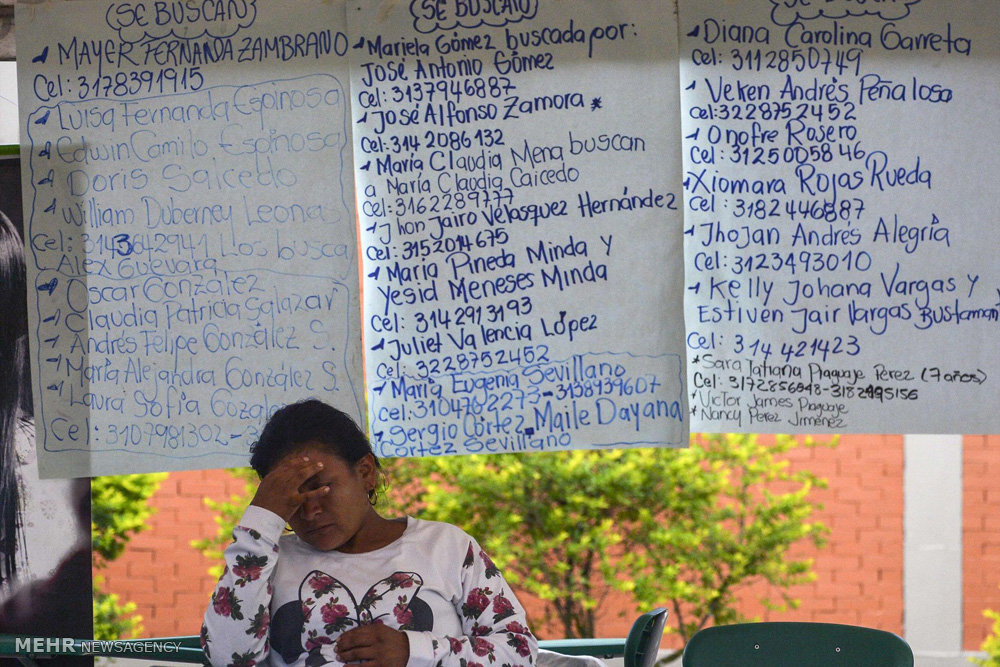 SE BUSCAN
MAYER FERNANDA ZAMBRANO
Cel: 3178391915
Luisa Fernanda Espinosa
Edwin Camilo Espinosa
Doris Saicedo
William Duberney Leonas
Cel: 3143642941 Los busca
Alex Guevara
Oscar González
Claudia Patricia Salazar
Andrés Felipe González S.
María Alejandra González S.
Laura Sofía
Cel: 3107981302-3
SE BUSCAN
Mariela Gómez buscada por:
José Antonio Gómez
Cel: 3137946887
José Alfonso Zamora *
Cel: 3142086132
María Claudia Mena buscan
a María Claudia Caicedo
Cel: 3162289777
Jhon Jairo Velasquez Hernández
Cel: 3152014675
Maria Pineda Minda y
Yesid Meneses Minda
Cel: 3142913193
Juliet Valencia López
Cel: 3228752452
María Eugenia Sevillano
Cel: 3104702273 - 3138939607
Sergio Cortez - Maile Dayana
Cortez Sevillano
SE BUSCAN
Diana Carolina Garreta
Cel: 3112850749
Veken Andrés Peñalosa
Cel: 3228752452
Onofre Rosero
Cel: 3125005846
Xiomara Rojas Rueda
Cel: 3182446887
Jhojan Andrés Alegría
Cel: 3123493010
Kelly Johana Vargas y
Estiven Jair Vargas Bustaman
Cel: 314 421423
* Sara Tatiana Piaguaje Perez (7 años)
Cel: 3172856948-3182995156
* Victor James Piaguaje
* Nancy Perez Jiménez
MEHR NEWSAGENCY